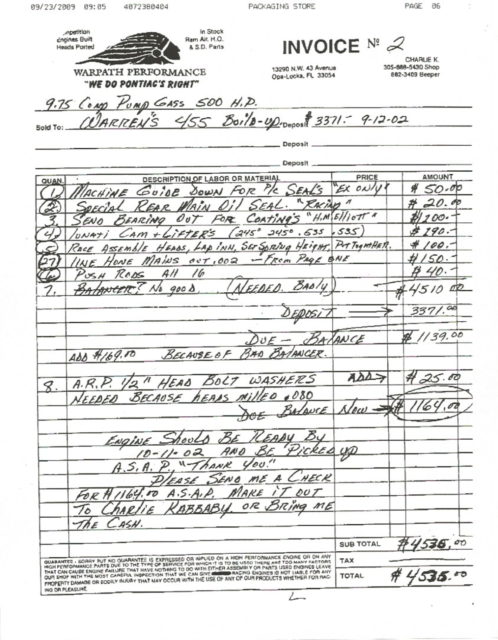 09/23/2009 09:05 4072380404 PACKAGING STORE PAGE 06
Competition
Engines Built
Heads Ported
In Stock
Ram Air. H.O.
& S.D. Parts
WARPATH PERFORMANCE
"WE DO PONTIAC'S RIGHT"
INVOICE № 2
13290 N.W. 43 Avenue
Opa-Locka, FL 33054
CHARLIE K.
305-688-5430 Shop
882-3409 Beeper
9.75 Comp Pump Gass 500 H.P.
Sold To: WARREN'S 455 Build-up Deposit $3371.- 9-12-02
Deposit
Deposit
QUAN. DESCRIPTION OF LABOR OR MATERIAL PRICE AMOUNT
1 MACHINE GUIDE DOWN FOR P/C SEAL'S "EX ONLY" $50.00
2 SPECIAL REAR MAIN OIL SEAL. "RACING" $20.00
3 SEND BEARING OUT FOR COATING'S "H.M. Elliott" $200.-
4 LUNATI CAM + LIFTER'S (245° 245° .535 .535) $290.-
5 RACE ASSEMBLE HEADS, LAP INN, SET SPRING HEIGHT, PUT TOGETHER. $100.-
27 LINE HONE MAINS OUT .002 - FROM PAGE ONE $150.-
6 PUSH RODS All 16 $40.-
7. BALANCER? NO good. (NEEDED BADLY) $4510.00
DEPOSIT → 3371.00
DUE - BALANCE $1139.00
ADD $169.00 BECAUSE OF BAD BALANCER.
8. A.R.P. 1/2" HEAD BOLT WASHERS ADD→ $25.00
NEEDED BECAUSE HEADS MILLED .080
DUE BALANCE NOW → $1164.00
ENGINE SHOULD BE READY BY
10-11-02 AND BE PICKED UP
A.S.A.P., "THANK YOU."
PLEASE SEND ME A CHECK
FOR $1164.00 A.S.A.P. MAKE IT OUT
TO CHARLIE KABBABY OR BRING ME
THE CASH.
SUB TOTAL $4535.00
GUARANTEE - SORRY BUT NO GUARANTEE IS EXPRESSED OR IMPLIED ON A HIGH PERFORMANCE ENGINE OR ON ANY
HIGH PERFORMANCE PARTS DUE TO THE TYPE OF SERVICE FOR WHICH IT IS TO BE USED THERE ARE TOO MANY FACTORS
THAT CAN CAUSE ENGINE FAILURE THAT HAVE NOTHING TO DO WITH EITHER ASSEMBLY OR PARTS USED ENGINES LEAVE
OUR SHOP WITH THE MOST CAREFUL INSPECTION THAT WE CAN GIVE RACING ENGINES IS NOT LIABLE FOR ANY
PROPERTY DAMAGE OR BODILY INJURY THAT MAY OCCUR WITH THE USE OF ANY OF OUR PRODUCTS WHETHER FOR RAC-
ING OR PLEASURE.
TAX
TOTAL $4535.00